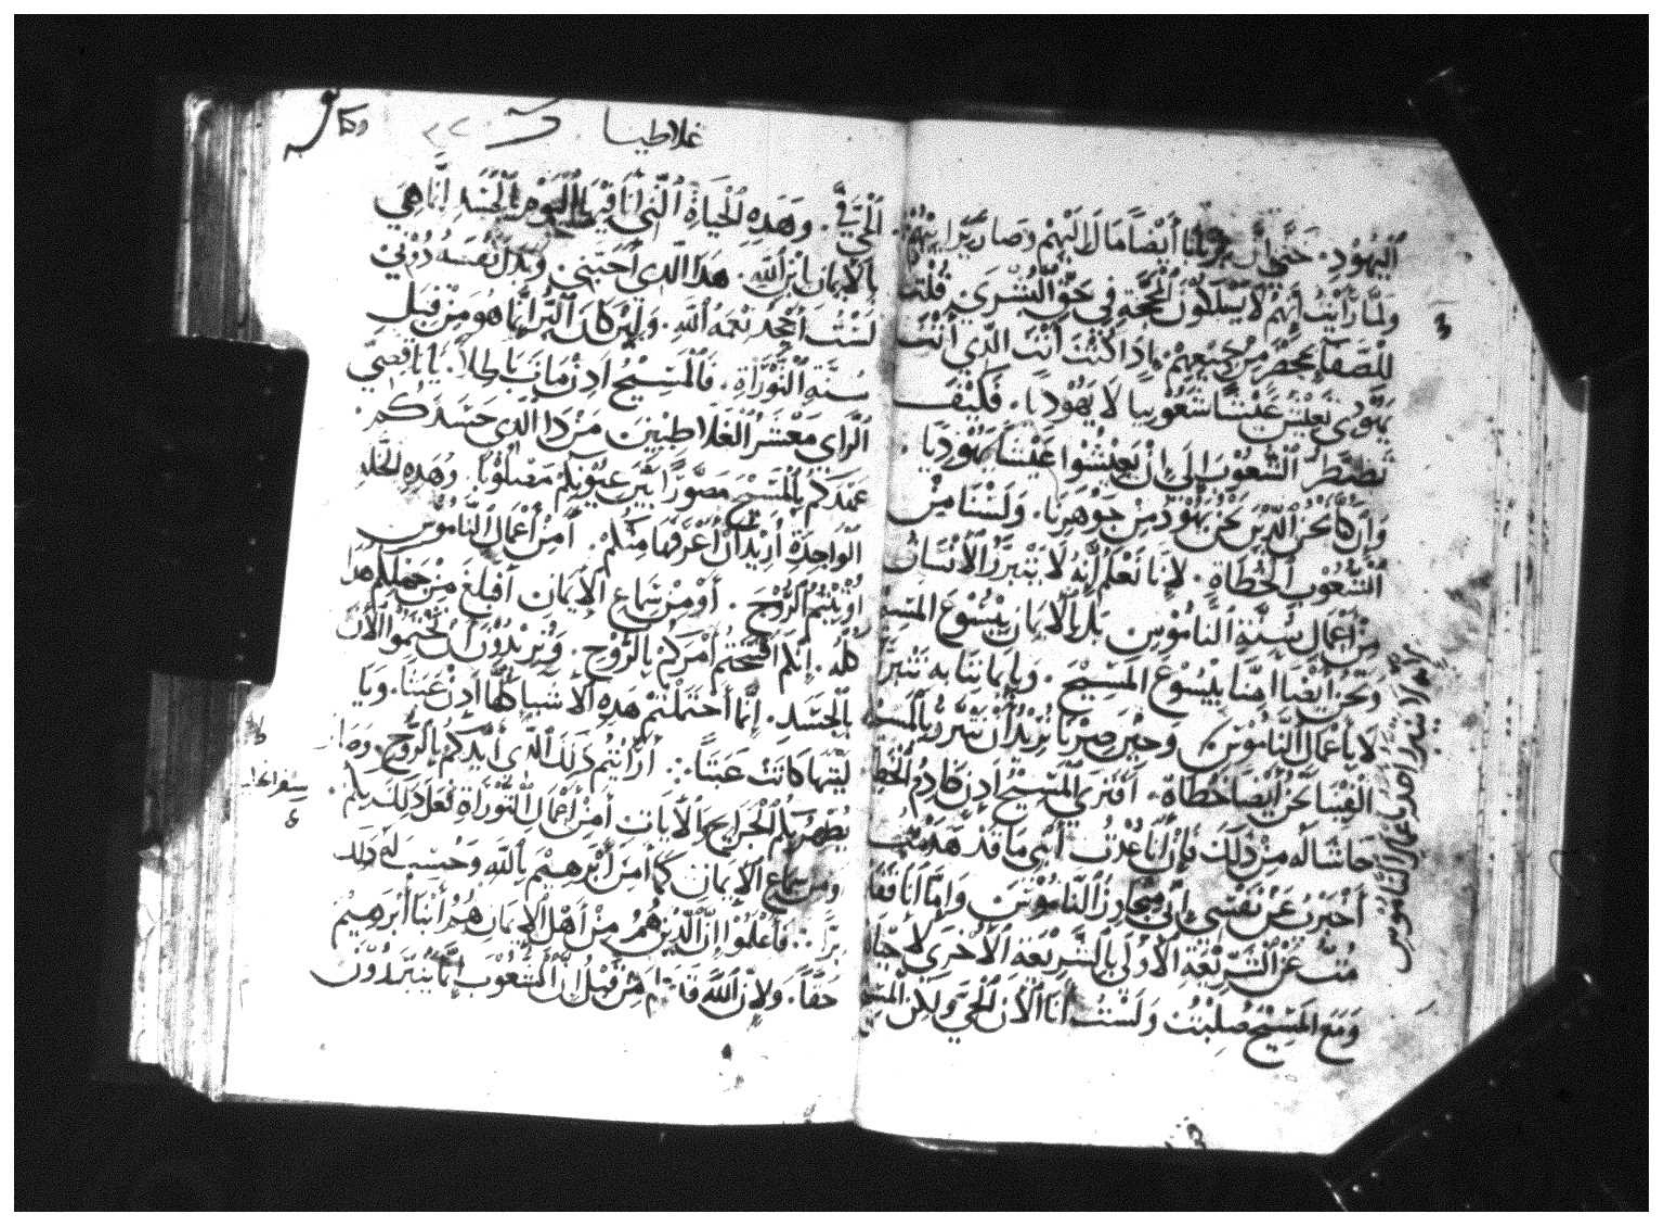 اَليَهُوْدِ. حَتَّي اِنَّ بَرْنَبَا أَيْضًا مَالَ اِلَيْهِمْ وَصَارَ يُرَايْهِمْ.
وَلَمَّا رَأَيْتُ أَنَهُمْ لَا يَسْلُكُوْنَ المَحَجَّةِ فِي حَقِّ البُشْرَي. قُلْتُ
لِلصَفَا بِمَحْضَرٍ مِنْ جَمِيْعِهِمْ. اِذَا كُنْتَ أَنْتَ الَّذِي أَنْتَ
يَهُوْدِي تَعِيْشُ عَيْشًا شُعُوْبِيًا لَا يَهُوْدِيًا. فَكَيْفَ
تَضْطَرُ الشُّعُوْبَ اِلَى اَنْ يَعِيْشُوْا عَيْشًا يَهُوْدِيًا.
وَاِنْ كُنَّا نَحْنُ الَّذِيْنَ نَحْنُ يَهُوْد مِنْ جَوْهَرِنَا. وَلَسْنَا مِنْ
اَلشُّعُوْبِ اَلْخُطَاةِ. لِاَنَا نَعْلَمُ اِنَّهُ لَا يَتَبَرَّرُ اَلْاِنْسَانُ
مِنْ اَعْمَالِ سُنَّةِ النَّامُوْسِ بَلْ بِالْاِيْمَانِ بِيْسُوْعَ المَسِيْحِ
وَنَحْنُ اَيْضًا اَمَنَّا بِيْسُوْعَ المَسِيْحِ. وَبِاِيْمَانِنَا بِهِ نَتَبَرَّرُ
لَا بِاَعْمَالِ النَّامُوْسِ وَحِيْنَ صِرْنَا نُرِيْدُ أَنْ نَتَبَرَّرَ بِالْمَسِيْحِ
اَلْفِيْنَا نَحْنُ أَيْضًا خُطَاةً. اَفَتَرَي المَسِيْحُ اِذَنْ خَادِمُ الْخَطَا
حَاشَا لَهُ مِنْ ذَلِكَ فَاِنْ اَنَا عُدْتُ أَبْنِي مَا قَدْ هَدَمْتُ
أَخْبَرْتُ عَنْ نَفْسِي اِنِّي مُتَجَاوِزُ النَّامُوْسَ وَاِمَّا اَنَا فَقَدْ
مُتُّ عَنْ الشَّرِيْعَةِ اَلْاُوْلَي بِالشَّرِيْعَةِ اَلْاُخْرَي لِاَحْيَا لِلَّهِ
وَمَعَ المَسِيْحِ صُلِبْتُ وَلَسْتُ أَنَا اَلْاَنَ اَلْحَيُّ وَلَكِنَّ المَسِيْحَ
لَا يَتَبَرَّرُ أَحَدٌ بِاَعْمَالِ النَّامُوْسِ
غلاطيا
اَلْحَيُّ فِيَّ. وَهَذِهِ اَلْحَيَاةُ الَّتِي اَنَا فِيْهَا اَلْيَوْمَ بِالْجَسَدِ اِنَّمَا هِيَ
بِالْاِيْمَانِ بِاِبْنِ اللَّهِ. هَذَا الَّذِي أَحَبَّنِي وَبَذَلَ نَفْسَهُ دُوْنِيْ
لَسْتُ أَجْحَدُ نِعْمَهُ اللَّهِ. وَلَيْنَ كَانَ اَلْبُرُّ اِنَّمَا هُوَ مِنْ قِبَلِ
سُنَّةِ اَلتَّوْرَاةِ. فَالْمَسِيْحُ اِذَنْ مَاتَ بَاطِلًا. يَا نَاقِصِي
اَلْرَاي مَعْشَرَ الْغَلَاطِيِيْنَ مَنْ ذَا الَّذِي حَسَدَكُمْ.
عَهْدَكُمْ بِالْمَسِيْحِ مُصَوَّرًا بَيْنَ عُيُوْنِكُمْ مَصْلُوْبًا. وَهَذِهِ الْخَلَّةِ
الْوَاحِدَةِ أُرِيْدُ أَنْ أَعْرِفَهَا مِنْكُمْ. أَمِنْ أَعْمَالِ النَّامُوْسِ
أُوْتِيْتُمُ اَلْرُّوْحَ. أَوْ مِنْ سَمَاعِ اَلْاِيْمَانِ أَفَبَلَغَ مِنْ جَهْلِكُمْ هَذَا
كُلَّهُ. اِنَّكُمْ اَفْتَتَحْتُمْ أَمْرَكُمْ بِالْرُّوْحِ. وَتُرِيْدُوْنَ أَنْ تَخْتِمُوْا اَلْاَنَ
بِالْجَسَدِ. اِنَّمَا أَحْتَمَلْتُمْ هَذِهِ الْأَشْيَا كُلَّهَا اِذَنْ عَبَثًا. وَيَا
لَيْتَهَا كَانَتْ عَبَثًا. أَرَأَيْتُمْ ذَلِكَ الَّذِي أَيَّدَكُمْ بِالرُّوْحِ. وَصَارَ
يُظْهِرُ بِكُمُ اَلْجَرَايِحَ بِالْأَيَاتِ أَمِنْ أَعْمَالِ التَّوْرَاةِ فَعَلَ ذَلِكَ بِكُمْ.
وَمِنْ سَمَاعِ اَلْاِيْمَانِ كَمَا اَمَنَ اَبْرَهِيْمُ بِاللَّهِ وَحُسِبَ لَهُ ذَلِكَ
بِرًّا. فَأَعْلَمُوْا اِنَّ الَّذِيْنَ هُمْ مِنْ أَهْلِ اَلْاِيْمَانِ هُمْ أَبْنَا أَبْرَهِيْمَ
حَقًّا. وَلِاَنَّ اَللَّهَ مِنْ قَبْلُ اِنَّ اَلشُّعُوْبَ اِنَّمَا يَتَبَرَّرُوْنَ